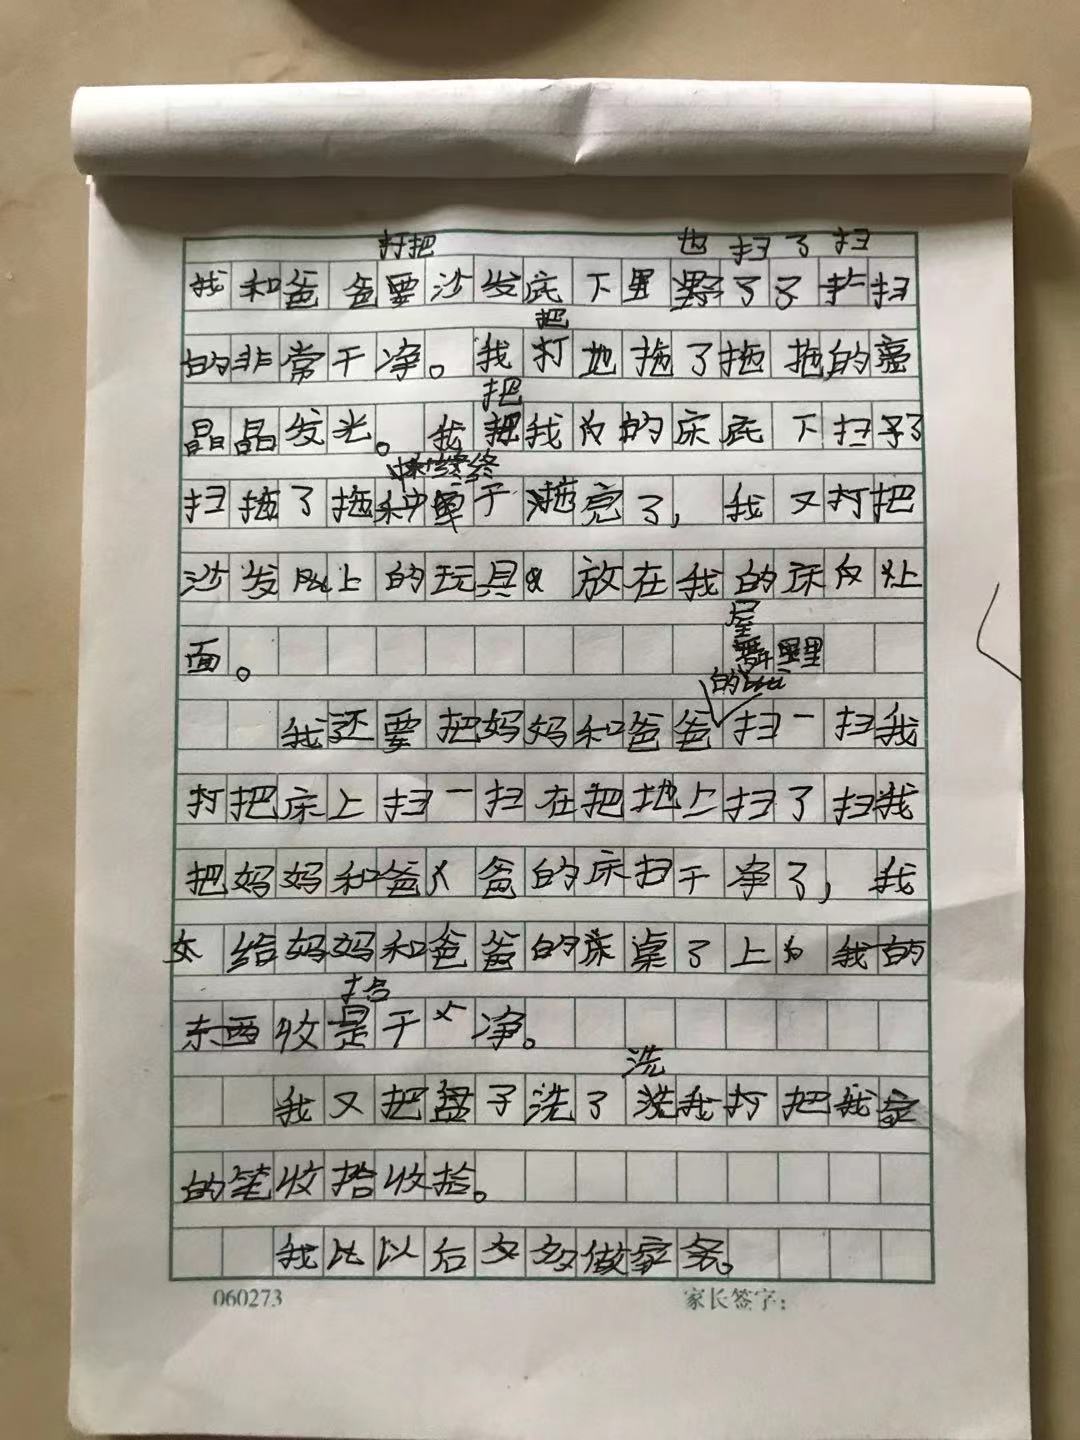 打把 也扫了扫
我和爸爸要沙发底下里了了扫
的非常干净。我打地拖了拖拖的亮
把
晶晶发光。我把我的床底下扫了
把
终
扫拖了拖于拖亮了，我又打把
沙发上的玩具放在我的床上
面。
屋
里
的
我还要把妈妈和爸爸扫一扫我
打把床上扫一扫在把地上扫了扫我
把妈妈和爸爸的床扫干净了，我
给妈妈和爸爸的桌了上我的
拾
东西收是干净。
洗
我又把盘子洗了洗我打把我家
的笔收拾收拾。
我比以后多做家务。
060273 家长签字：